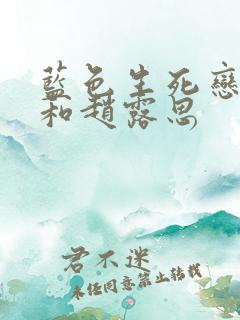 藍色生死戀
和趙露思
君不迷
未经同意禁止转载